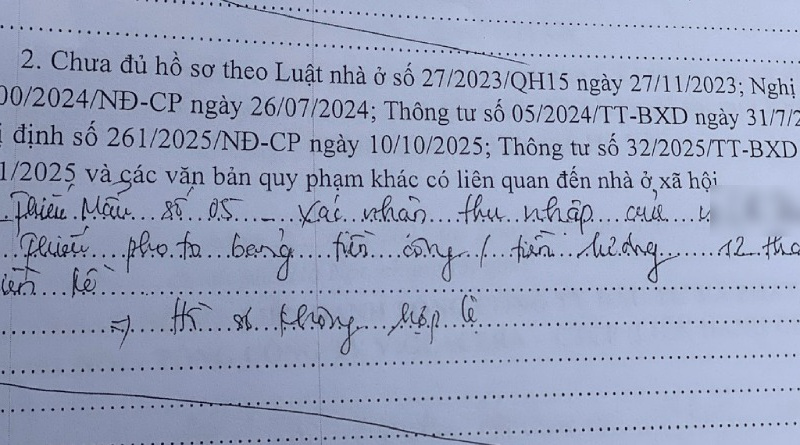 2. Chưa đủ hồ sơ theo Luật nhà ở số 27/2023/QH15 ngày 27/11/2023; Nghị
00/2024/NĐ-CP ngày 26/07/2024; Thông tư số 05/2024/TT-BXD ngày 31/7/2
ị định số 261/2025/NĐ-CP ngày 10/10/2025; Thông tư số 32/2025/TT-BXD
1/2025 và các văn bản quy phạm khác có liên quan đến nhà ở xã hội
- Thiếu Mẫu số 05 - Xác nhận thu nhập của
- Thiếu photo bảng tiền công / tiền lương 12 thá
liền kề
=> Hồ sơ không hợp lệ